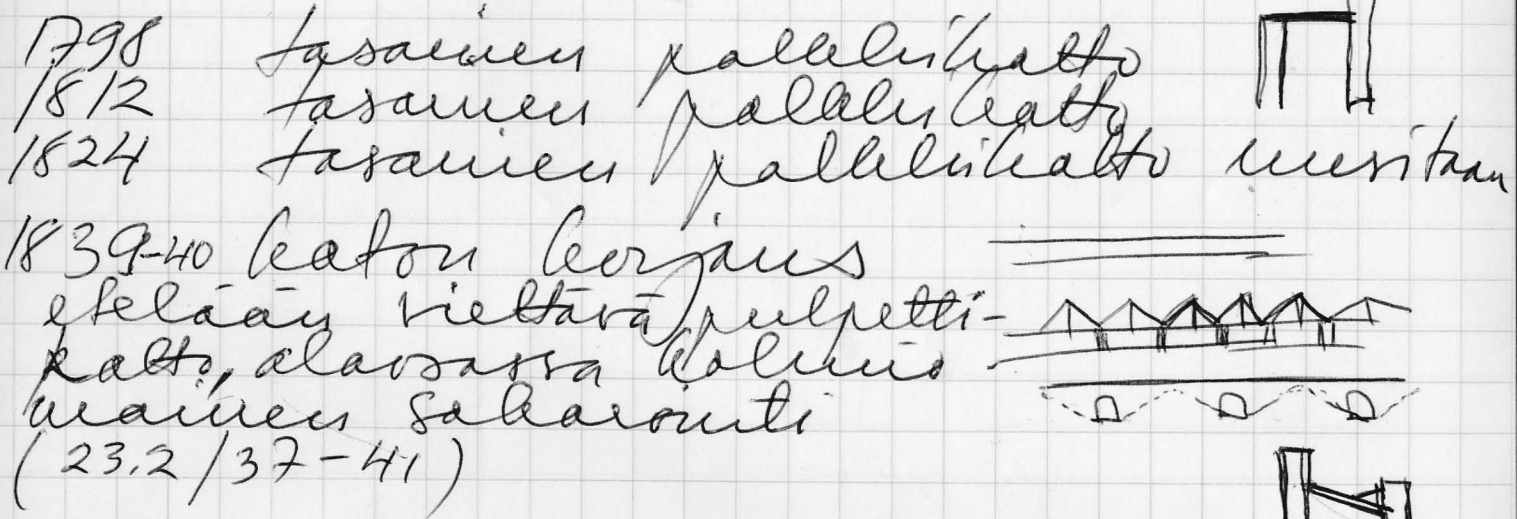 1798 tasainen palkkikatto
1812 tasainen palkkikatto
1824 tasainen palkkikatto uusitaan
1839-40 katon korjaus
etelään viettävä pulpetti-
katto, alaosassa kolmio-
mainen sakarointi
(23.2/37-41)